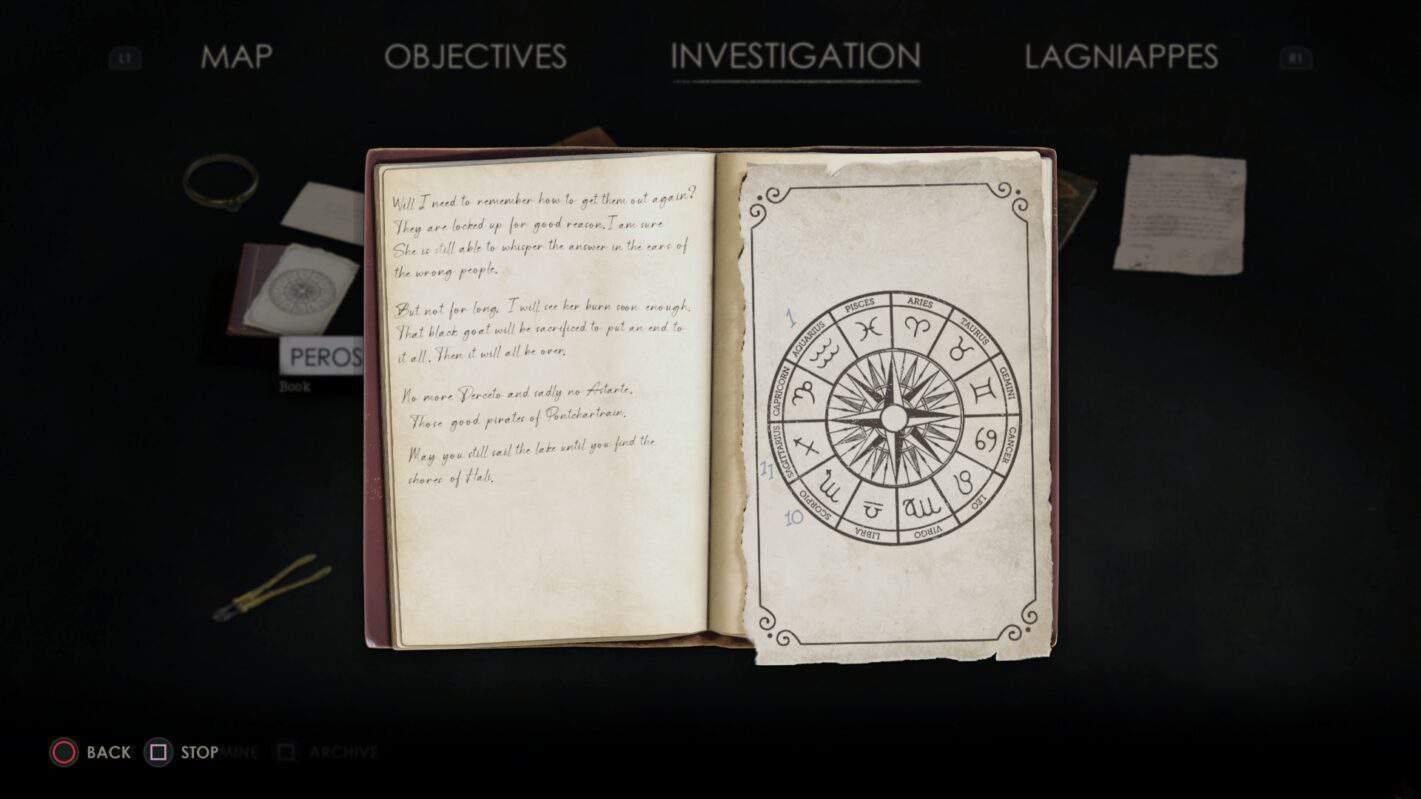 L1
MAP
OBJECTIVES
INVESTIGATION
LAGNIAPPES
R1
PEROS
Book
Will I need to remember how to get them out again?
They are locked up for good reason. I am sure
She is still able to whisper the answer in the ears of
the wrong people.
But not for long. I will see her burn soon enough.
That black goat will be sacrificed to put an end to
it all. Then it will all be over.
No more Perceto and sadly no Astarte.
Those good pirates of Pontchartrain.
May you still sail the lake until you find the
shores of Hali.
1
11
10
PISCES
ARIES
TAURUS
GEMINI
CANCER
LEO
VIRGO
LIBRA
SCORPIO
SAGITTARIUS
CAPRICORN
AQUARIUS
BACK
STOP
MINE
ARCHIVE